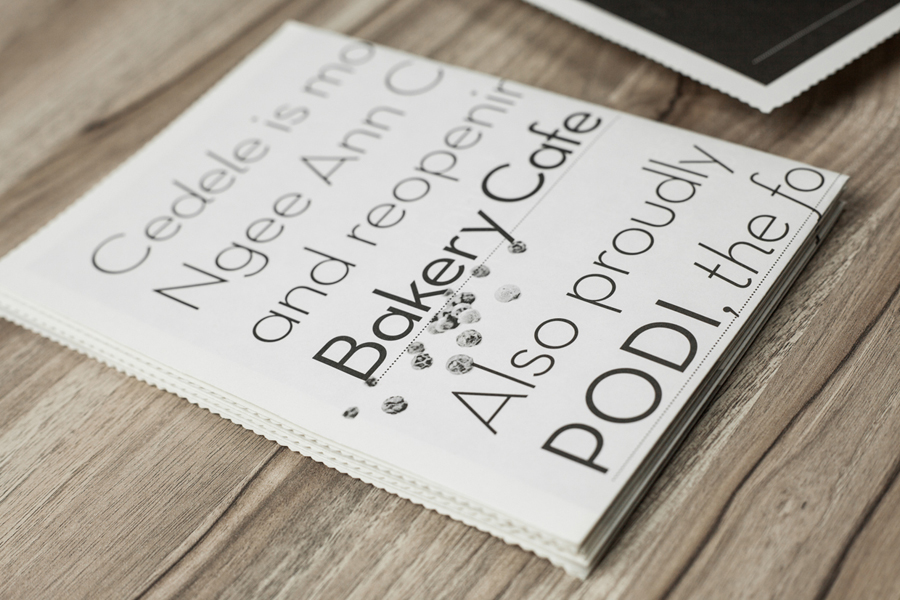 Cedele is mo
Ngee Ann C
and reopenin
Bakery Cafe
Also proudly
PODI, the fo